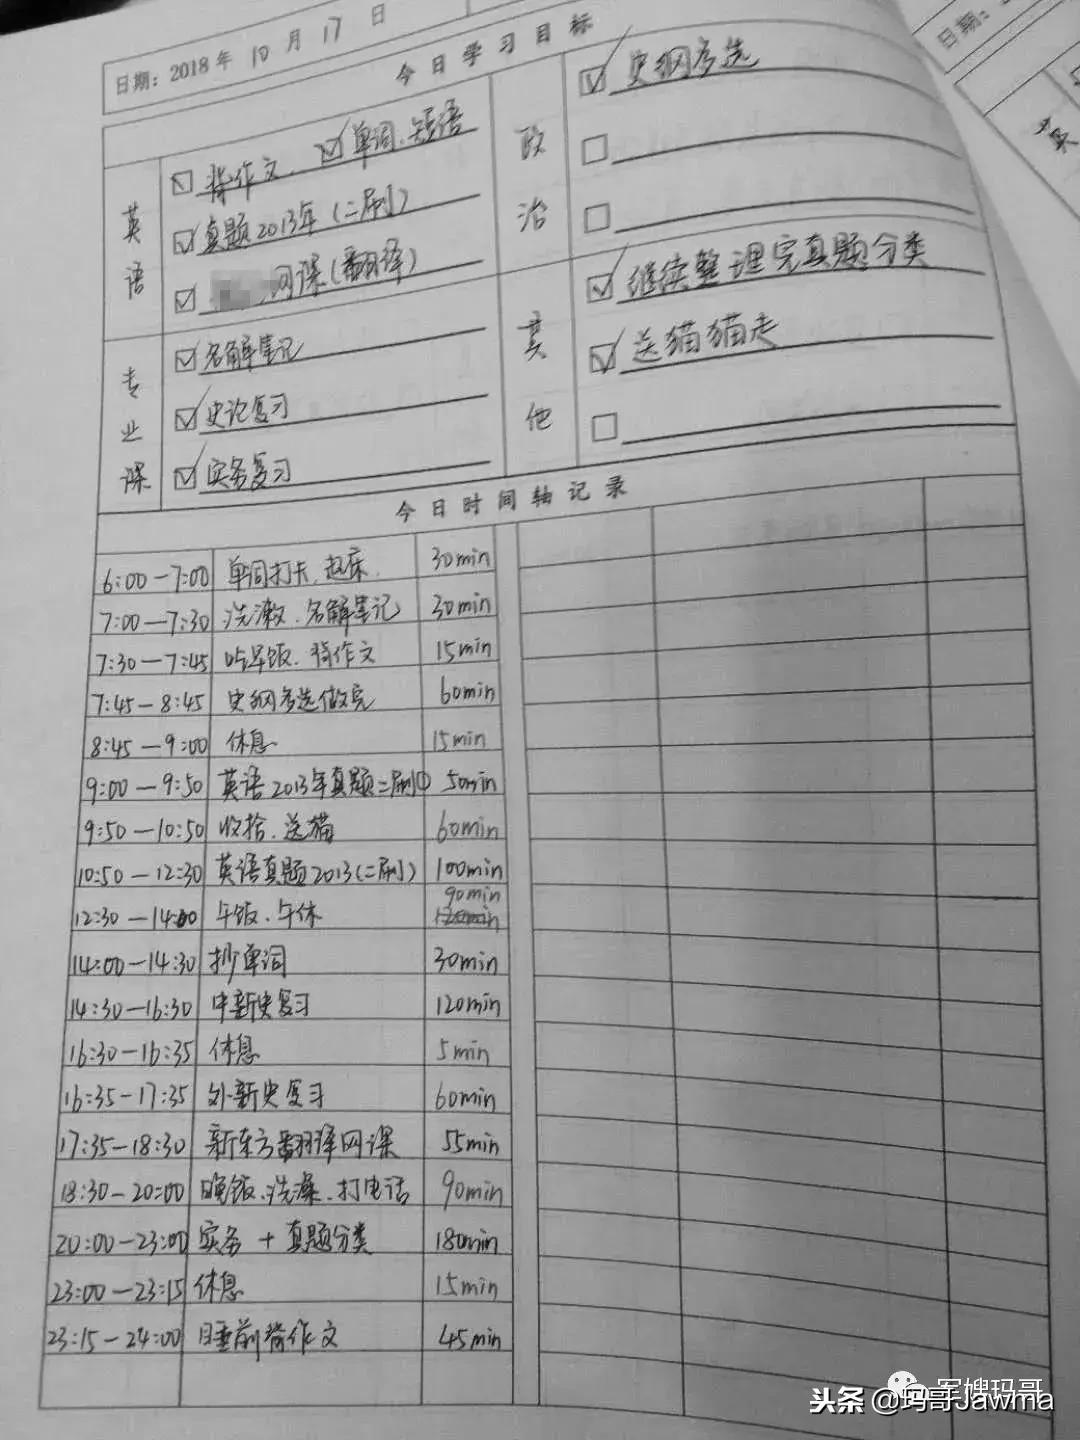 日期：2018年10月17日
今日学习目标
英语
背作文、 单词、短语
真题2013年(二刷)
网课(翻译)
专业课
名解笔记
史论复习
实务复习
政治
史纲多选
其他
继续整理完真题分类
送猫猫走
今日时间轴记录
6:00—7:00 单词打卡、起床. 30min
7:00—7:30 洗漱、名解笔记 30min
7:30—7:45 吃早饭、背作文 15min
7:45—8:45 史纲多选做完 60min
8:45—9:00 休息 15min
9:00—9:50 英语2013年真题二刷① 50min
9:50—10:50 收拾、送猫 60min
10:50—12:30 英语真题2013(二刷) 100min
12:30—14:00 午饭、午休 90min
14:00—14:30 抄单词 30min
14:30—16:30 中新史复习 120min
16:30—16:35 休息 5min
16:35—17:35 外新史复习 60min
17:35—18:30 新东方翻译网课 55min
18:30—20:00 晚饭、洗澡、打电话 90min
20:00—23:00 实务+真题分类 180min
23:00—23:15 休息 15min
23:15—24:00 睡前背作文 45min
日期：
军嫂玛哥
头条@玛哥Jawma